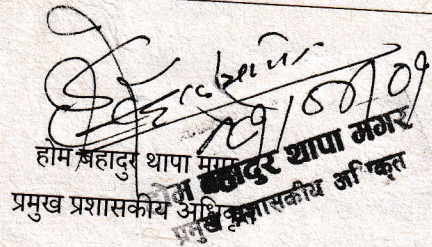 होम बहादुर थापा मगर
प्रमुख प्रशासकीय अधिकृत
होम बहादुर थापा मगर
प्रमुख प्रशासकीय अधिकृत